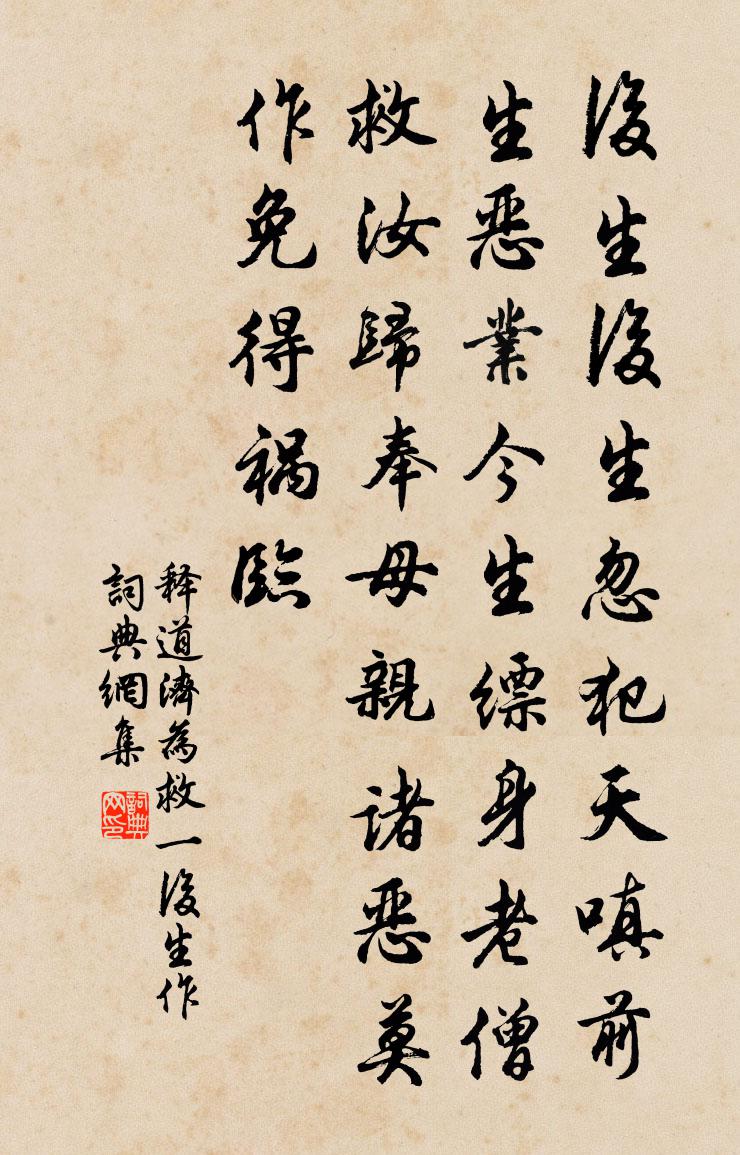 後生後生忽犯天嗔前
生惡業今生縹身老僧
救汝歸奉母親諸惡莫
作免得禍臨
释道濟為救一後生作
詞典網集
詞典网印